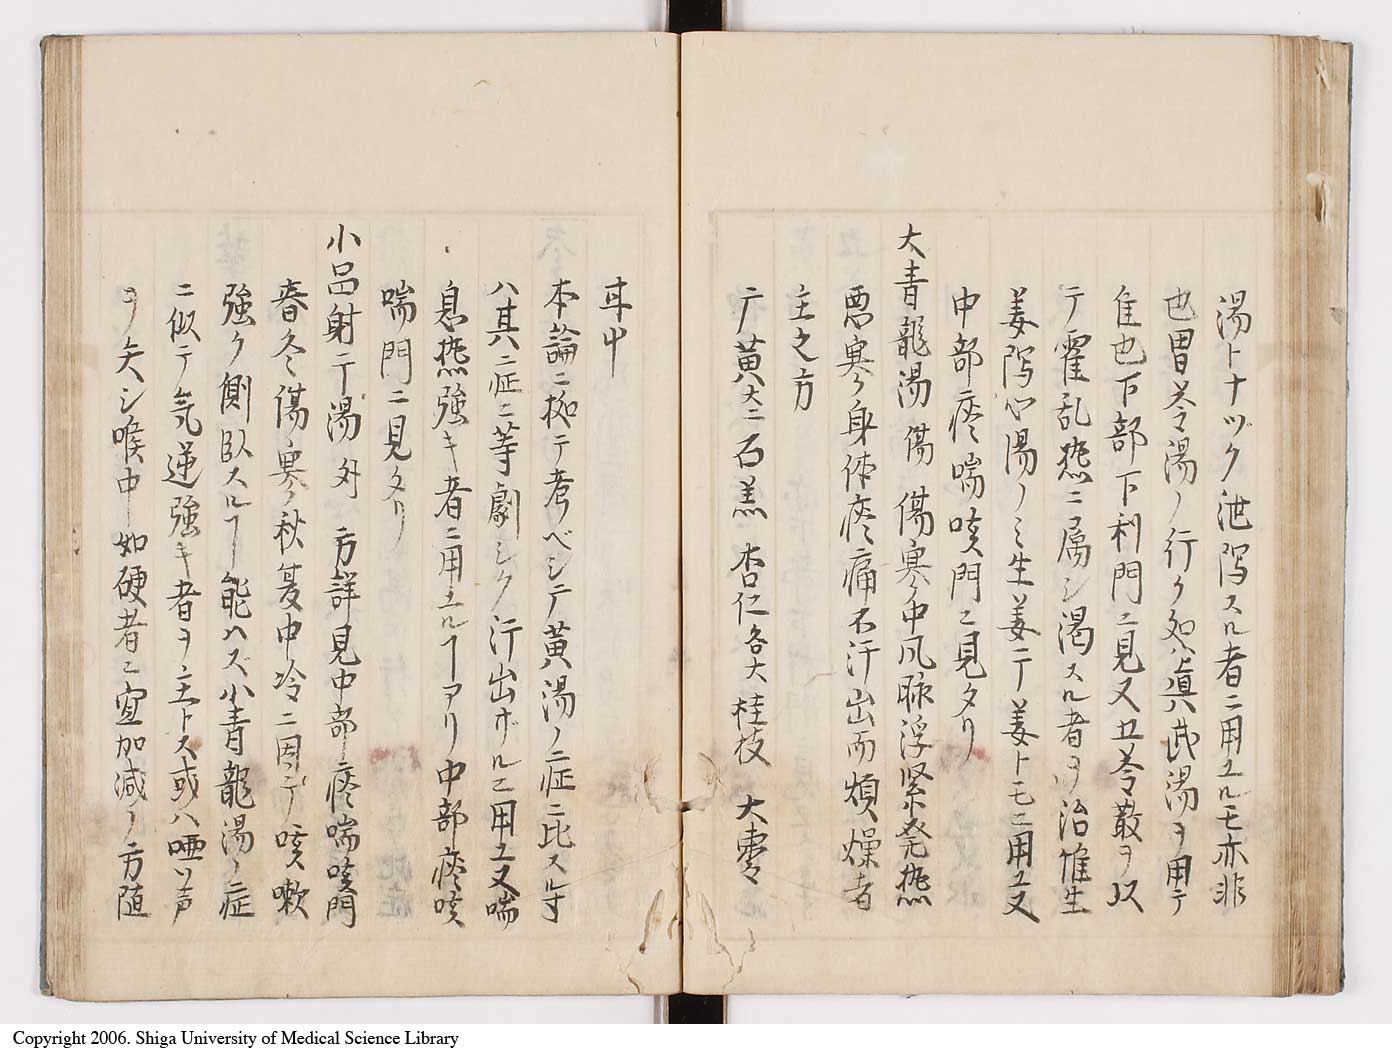 湯トナヅク泄瀉スル者ニ用ユルモ亦非
也胃苓湯ノ行ク処ハ眞武湯ヲ用テ
隹也下部下利門ニ見又五苓散ヲ以
テ霍乱熱ニ属シ渇スル者ヲ治惟生
姜瀉心湯ノミ生姜干姜トモニ用ユ又
中部痰喘咳門ニ見タリ
大青龍湯 傷 傷寒中風脉浮緊発熱
悪寒身体疼痛不汗出而煩燥者
主之方
广黄大二 石羔 杏仁各大 桂枝 大棗
耳艸
本論ニ拠テ考ベシ广黄湯ノ症ニ比スル寸
ハ其ノ症ニ等劇シク汗出ザルニ用ユ又喘
息熱強キ者ニ用ユルヿアリ中部痰咳
喘門ニ見タリ
小品射干湯 外 方詳見中部痰喘咳門
春冬傷寒秋夏中冷ニ因テ咳嗽
強ク側臥スルヿ能ハズ小青龍湯ノ症
ニ似テ気逆強キ者ヲ主トス或ハ唖ツ声
ヲ失シ喉中如硬者ニ宜加減ノ方随
Copyright 2006. Shiga University of Medical Science Library